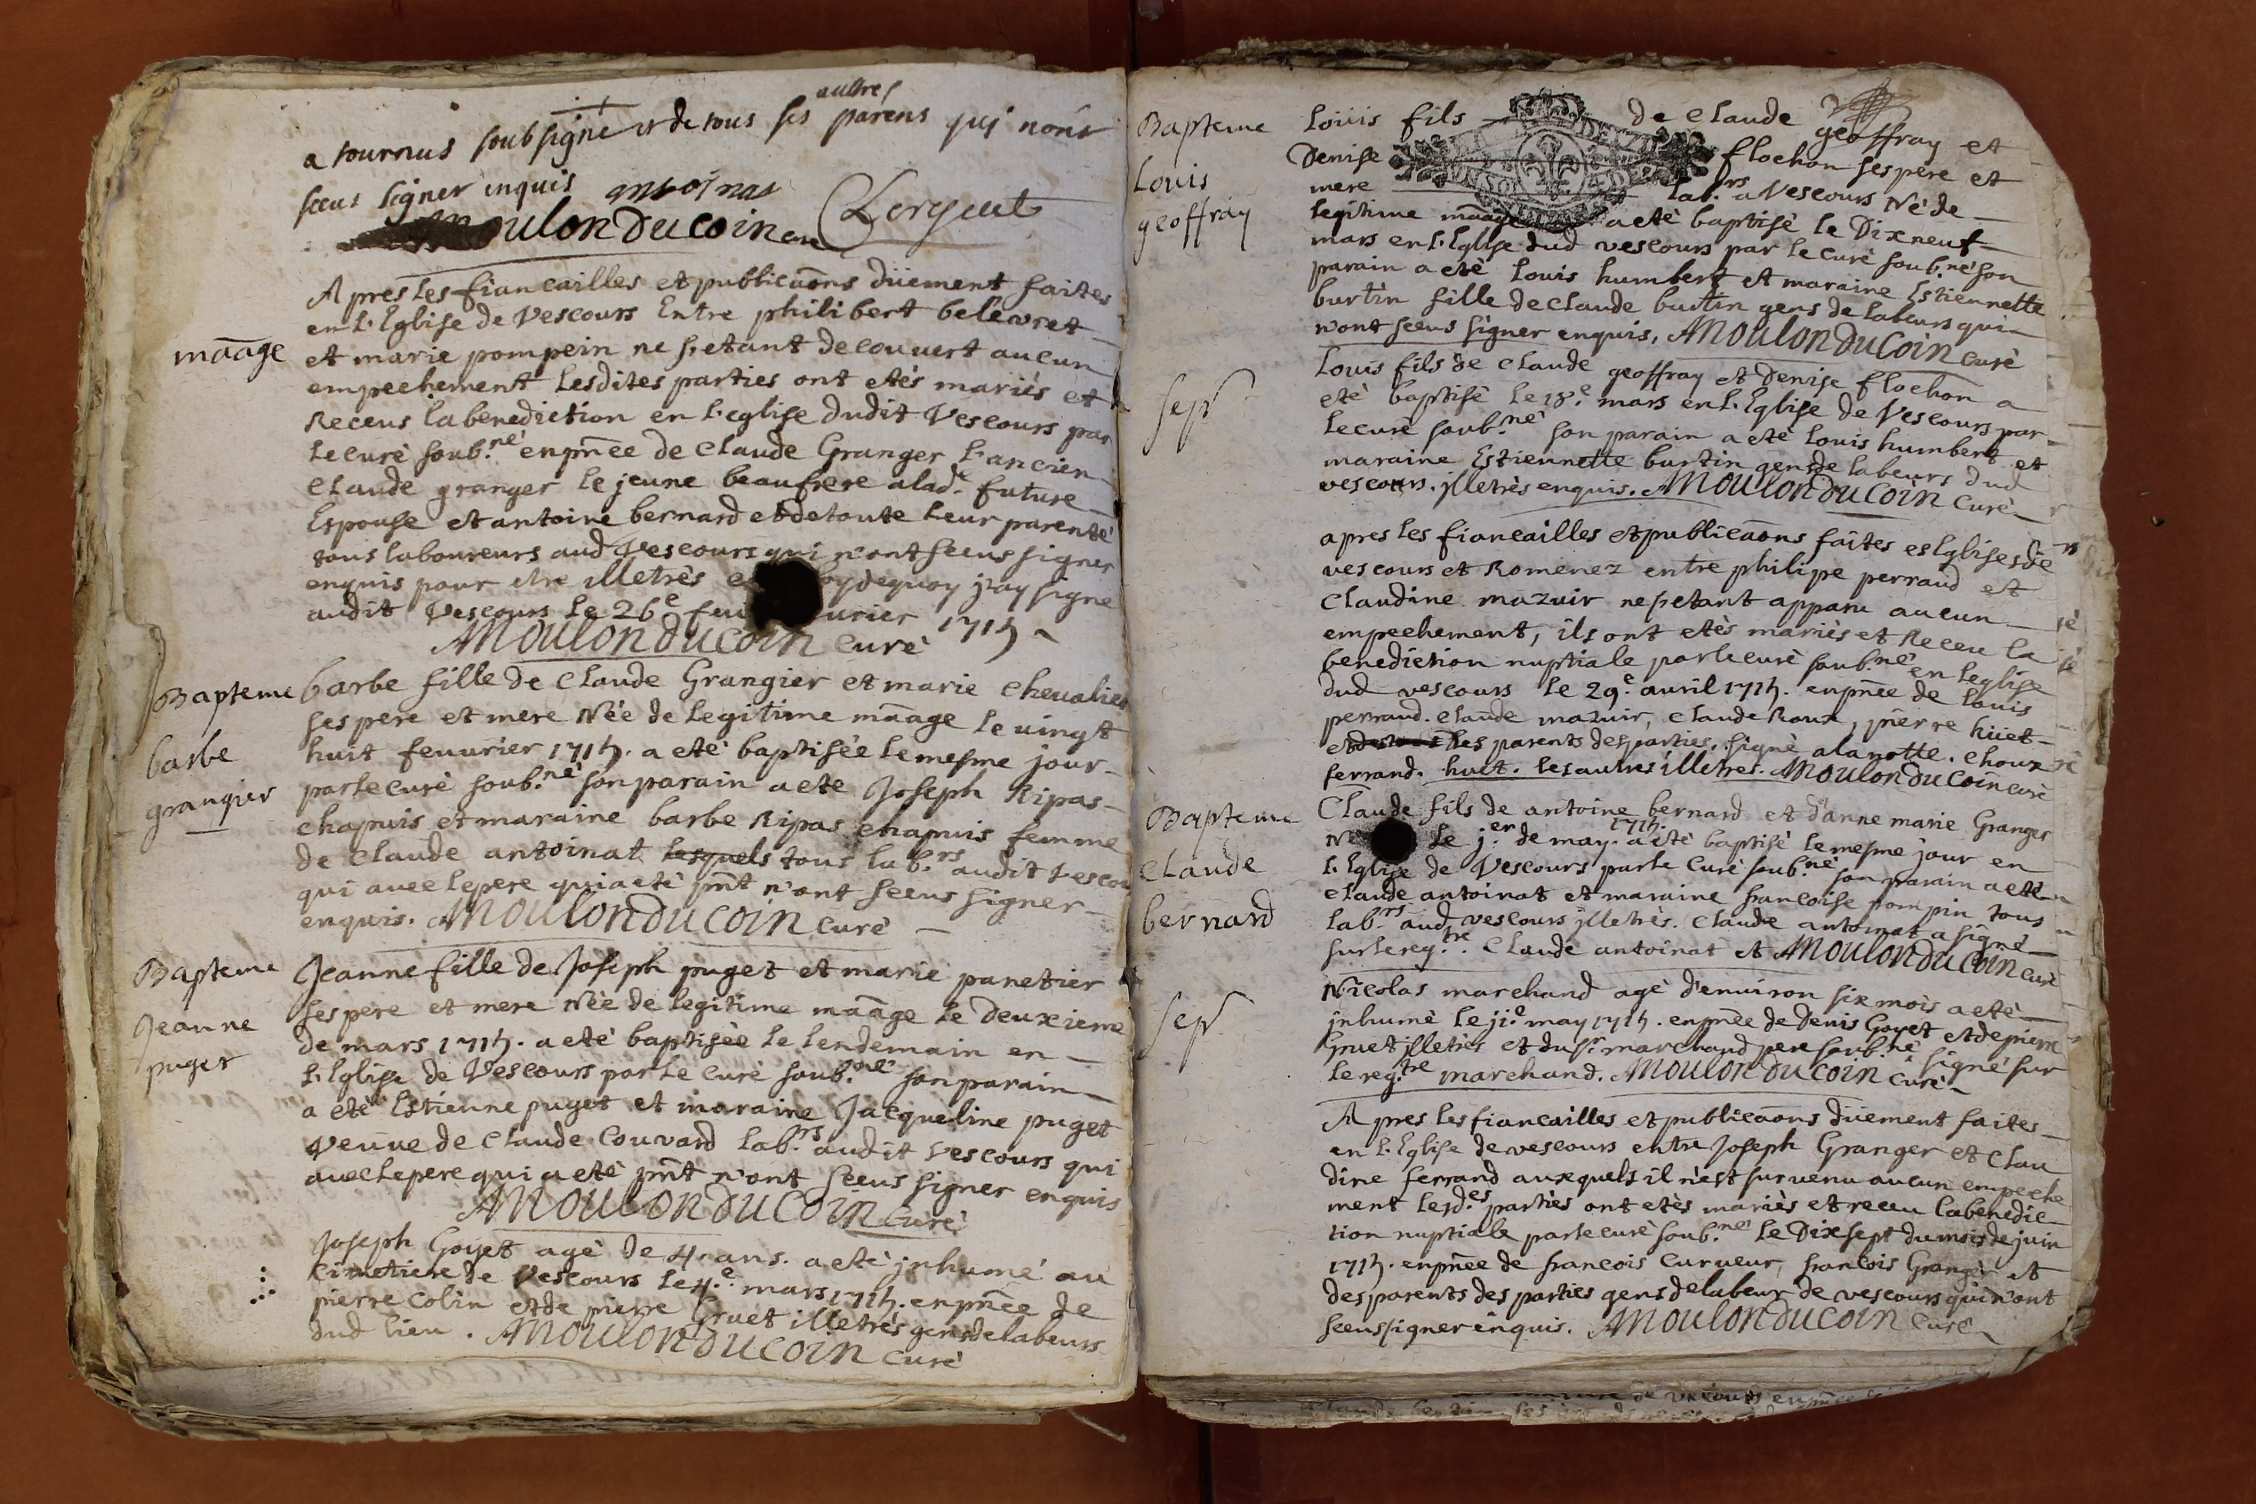 autres
a tournus soubsigné et de tous ses parens qui nont
sceus signer enquis antoinat
Moulon Ducoin curé Sergent
Apres les fiancailles et publicaōns düement faites
en l'Eglise de Vescours Entre philibert belèvret
maāge
et marie pompein ne s'etant decouvert aucun
empechement Lesdites parties ont etès mariès et
Receus la benediction en l'eglise dudit Vescours par
le curè soub.né enpn̄ce de claude Granger L'ancien
claude granger le jeune beaufrere alad.e future
Espouse et antoine bernard et de toute leur parentè
tous laboureurs aud Vescours qui n'ont sceus signer
enquis pour etre illetrès dequoy j'ay signé
audit Vescours le 26e feuvrier 1715
AMoulon Ducoin curè
Bapteme
barbe
grangier
barbe fille de Claude Grangier et marie chevalier
ses pere et mere Née de Legitime māage le vingt
huit feuurier 1715. a etè baptisée le mesme jour
par le curé soub.né son parain a ete Joseph Ripas
chapuis et maraine barbe Ripas chapuis femme
de claude antoinat lesquels tous lab.rs audit Vescou
qui avec le pere qui a etè pn̄t n'ont sceus signer
enquis. AMoulon Ducoin curè
Bapteme
Jeanne
puget
Jeanne fille de Joseph puget et marie panetier
ses pere et mere Née de legitime maāge le Deuxieme
de mars 1715. a etè baptisèe le lendemain en
L'Eglise de Vescours par le curè soub.né son parain
a etè Estienne puget et maraine Jacqueline puget
veuve de claude Couvard lab.rs audit Vescours qui
avec le pere qui a etè pn̄t n'ont sceus signer enquis
AMoulon Ducoin curè
Joseph Goyet agè de 40 ans. a etè jnhumé au
cimetiere de Vescours le 4.e mars 1715. enpn̄ce de
pierre Colin et de pierre Gruet illetrès gens de labeurs
dud lieu. AMoulon Ducoin curè
Bapteme
Louis
geoffray
Loüis fils de claude geoffray et
Denise flochon ses pere et
mere lab.rs a Vescours Nè de
legitime maāge a etè baptisè le Dix neuf
mars en l'Eglise dud vescours par le curè soub.né son
parain a etè Louis humbert et maraine Estiennette
burtin fille de claude burtin gens de labeurs qui
n'ont sceus signer enquis. AMoulon Ducoin curè
sep.r
Louis fils de claude geoffray et Denise flochon a
etè baptisè le 18.e mars en l'Eglise de Vescours par
le curè soub.né son parain a etè louis humbert et
maraine Estiennette burtin gens de labeurs dud
vescours. jlletrès enquis. AMoulon Ducoin curè
apres les fiancailles et publicaōns faites es Eglises de
vescours et Romenez entre philipe perraud et
claudine mazuir ne s'etant apparu aucun
empechement, ils ont etès mariès et Receu la
benediction nuptiale par le curè soub.né en l'eglise
dud vescours le 29.e avril 1715. enpn̄ce de louis
perraud. claude mazuir, claude Roux, pierre hüet
les parents des parties. signè alanotte. choux
ferrand. huet. les autres illetres. AMoulon Ducoin curè
Bapteme
claude
bernard
Claude fils de antoine bernard et d'anne marie Granger
Né le j.er de may 1715. a etè baptisè le mesme jour en
L'Eglise de Vescours par le curè soub.né son parain a etè
claude antoinat et maraine francoise pompin tous
lab.rs aud vescours jlletrès. claude antoinat a signé
sur le reg.tre. claude antoinat et AMoulon Ducoin curè
sep.r
Nicolas marchand agè d'environ six mois a etè
jnhumè le ji.e may 1715. enpn̄ce de Denis Goyet et de pierre
Gruet jlletrès et du sr marchand pere soub.né signé sur
le reg.tre marchand. AMoulon Ducoin curè
Apres les fiancailles et publicaōns düement faites
en l'Eglise de vescours entre Joseph Granger et Clau
dine ferrand auxquels il n'est survenu aucun empeche
ment lesd.es parties ont etès mariès et receu la benedic
tion nuptiale par le curè soub.né le Dix sept du mois de juin
1715. enpn̄ce de francois Curveur, francois Granger et
des parents des parties gens de labeur de vescours qui n'ont
sceus signer enquis. AMoulon Ducoin curè